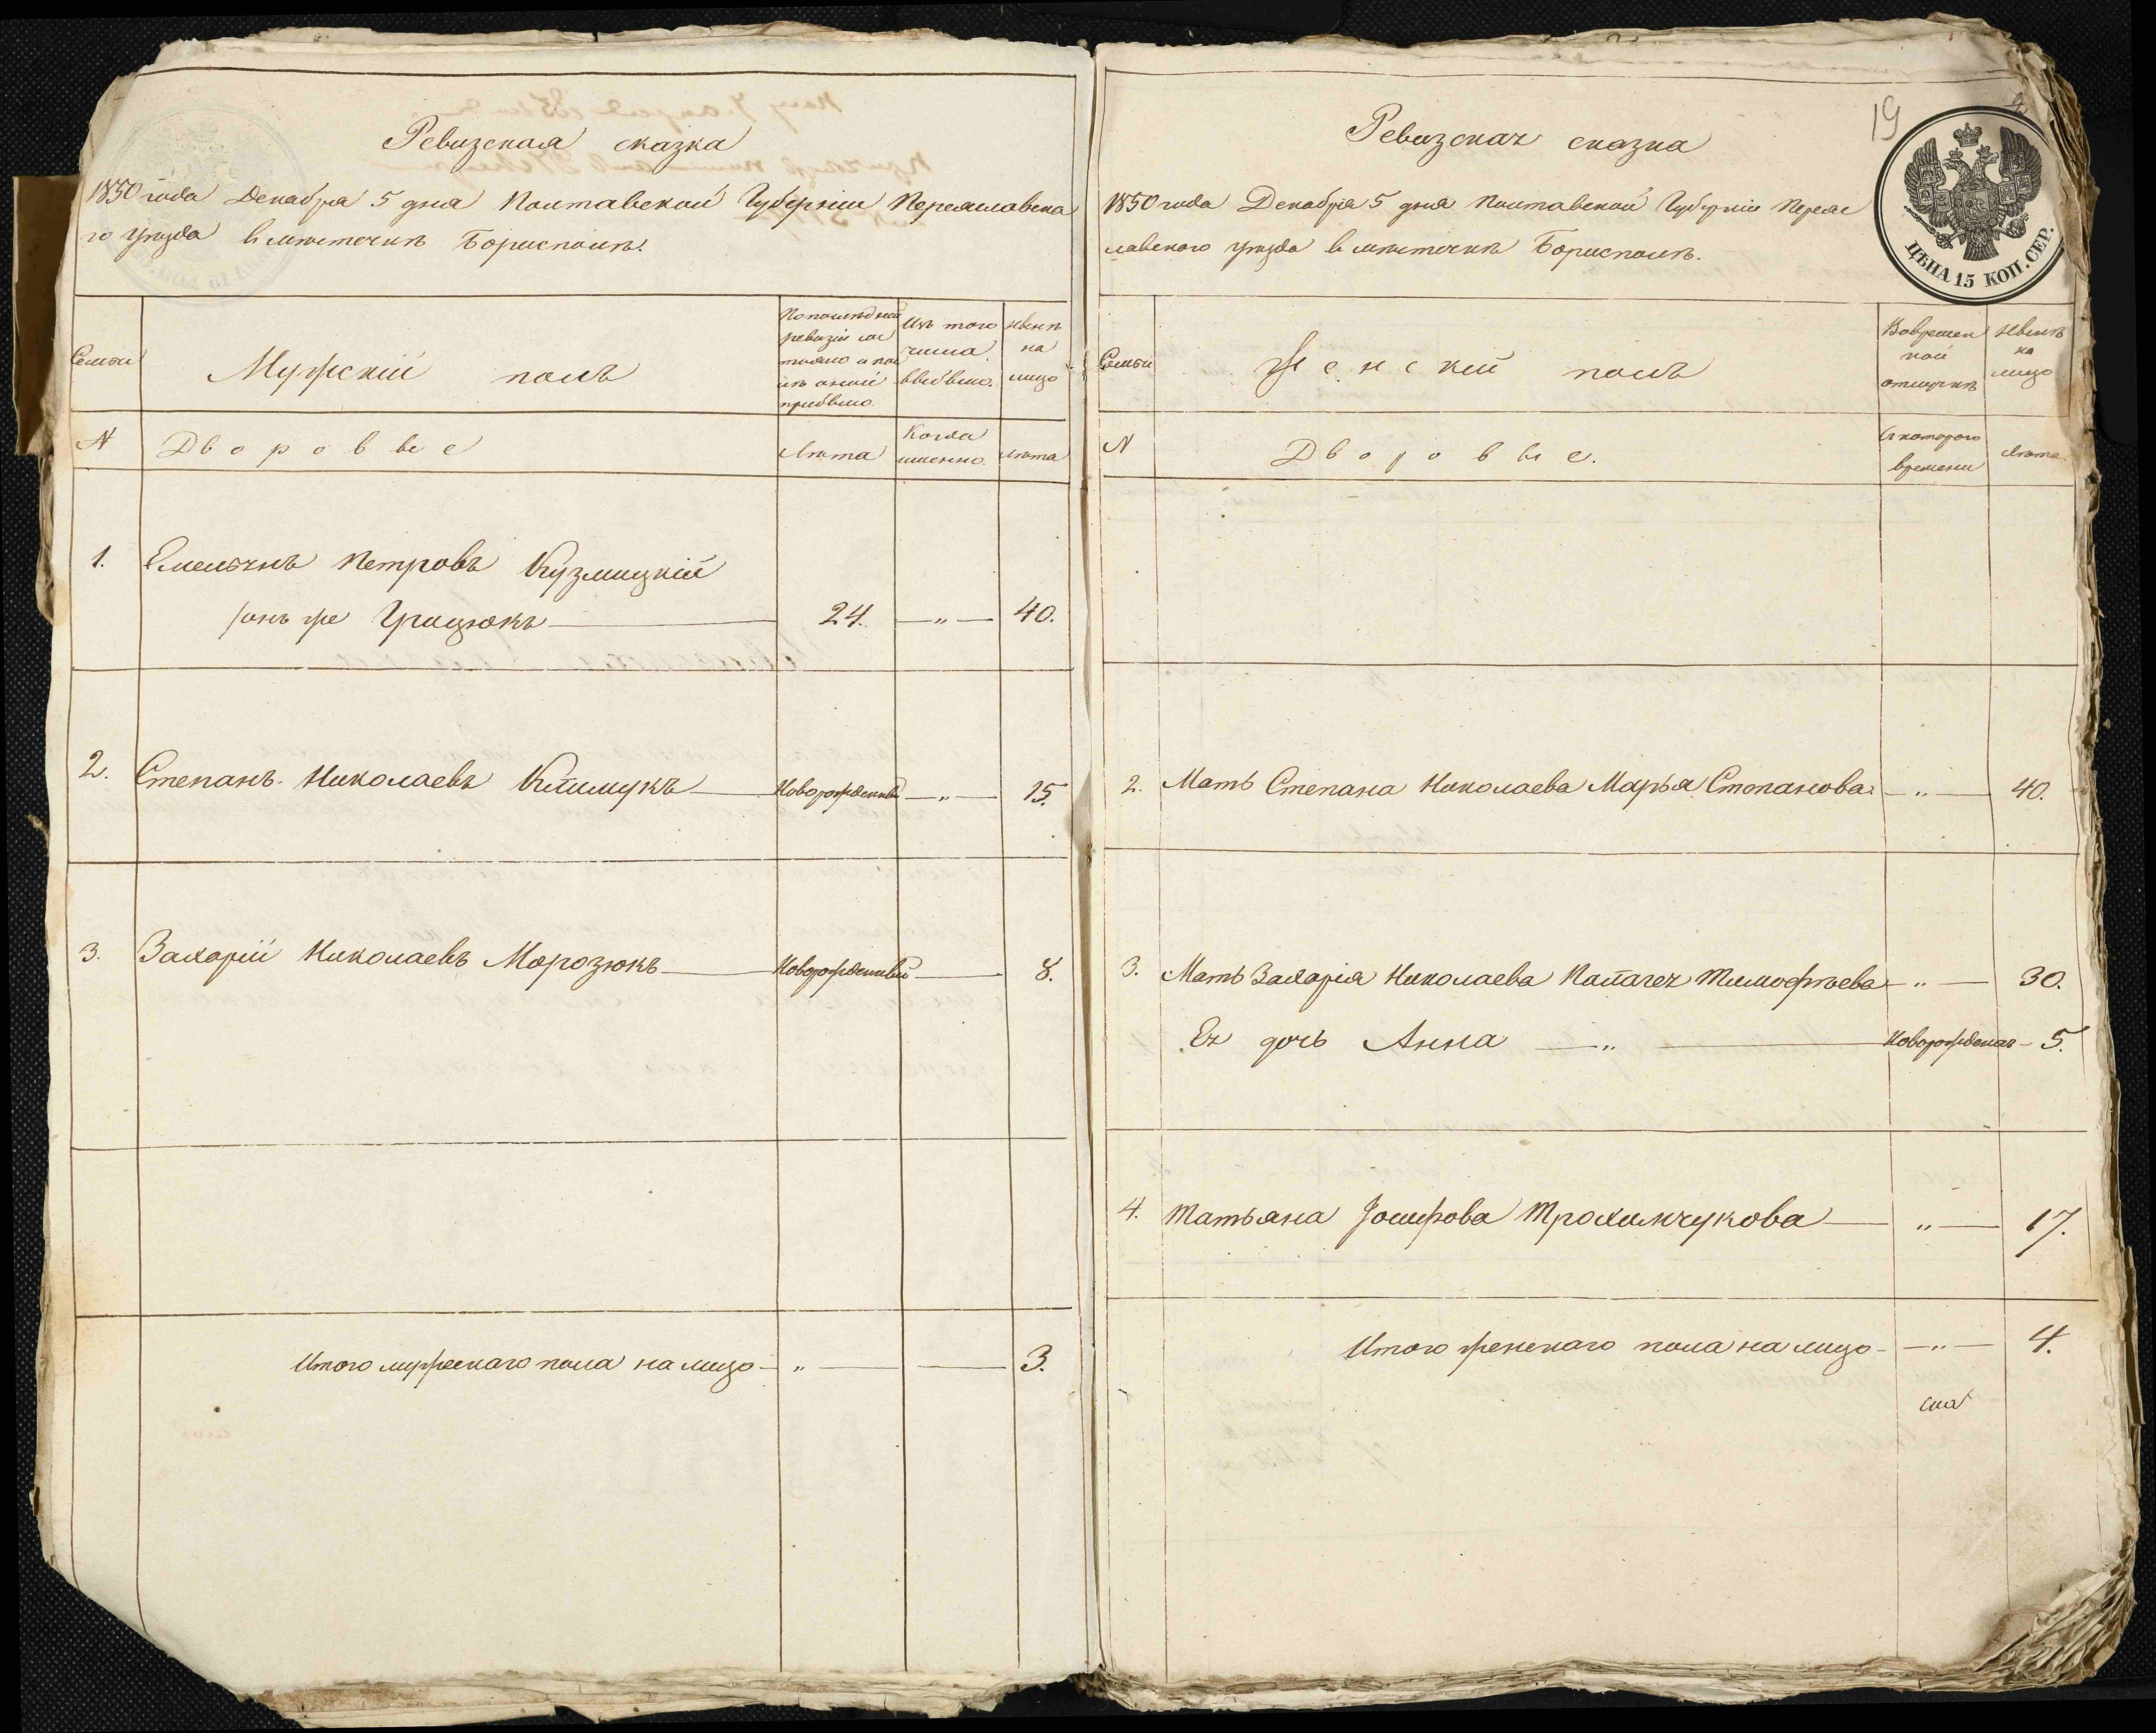 Ревизская сказка
1850 года Декабря 5 дня Полтавской Губернии Переяславска
го уезда в местечке Борисполе.
Семьи
Мужскій полъ
По последней
ревизіи со
стояло и пос
ле оной
прибыло.
Изъ того
числа
выбыло.
Ныне
на
лицо
№
Д в о р о в ы е
Лета
Когда
именно.
Лета
1. Емельянъ Петровъ Кузмицкій
онъ же Грицюкъ 24. — „ — 40.
2. Степанъ Николаевъ Климукъ Новорожденный — „ — 15.
3. Захарій Николаевъ Морозюкъ Новорожденный — 8.
Итого мужескаго пола на лицо — „ — 3.
19
Ревизская сказка
1850 года Декабря 5 дня Полтавской Губерніи Переяс
лавского уезда в местечке Борисполе.
ЦѢНА 15 КОП. СЕР.
Семьи
Женскій полъ
Во времен
ной
отлучке
Ныне
на
лицо
№
Д в о р о в ы е.
С котораго
времени
Лета.
2. Мать Степана Николаева Марья Степанова — „ — 40.
3. Мать Захарія Николаева Палагея Тимофеева — „ — 30.
Ея дочь Анна — „ — Новорожденая — 5.
4. Татьяна Іосифова Трохимчукова — „ — 17.
Итого женскаго пола на лицо — „ — 4.